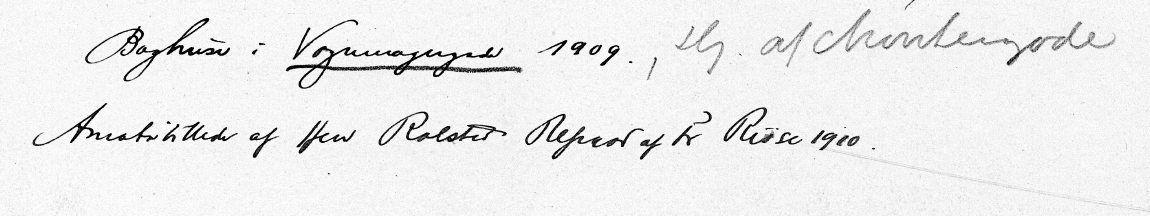 Baghuse i Vognmagergade 1909., Hj. af Møntergade
Amatørbillede af Herr Rolsted Repprod af Fr Riise 1910.